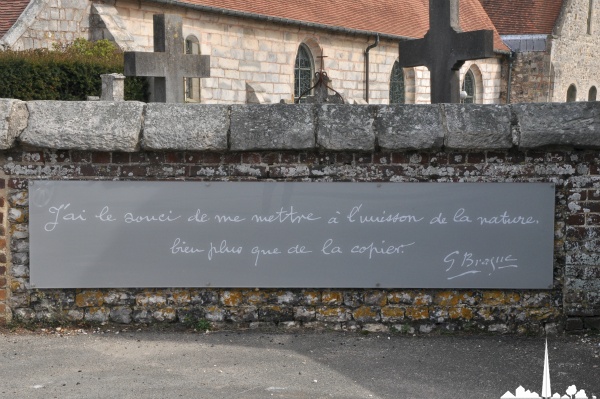 J'ai le souci de me mettre à l'unisson de la nature,
bien plus que de la copier.
G Braque